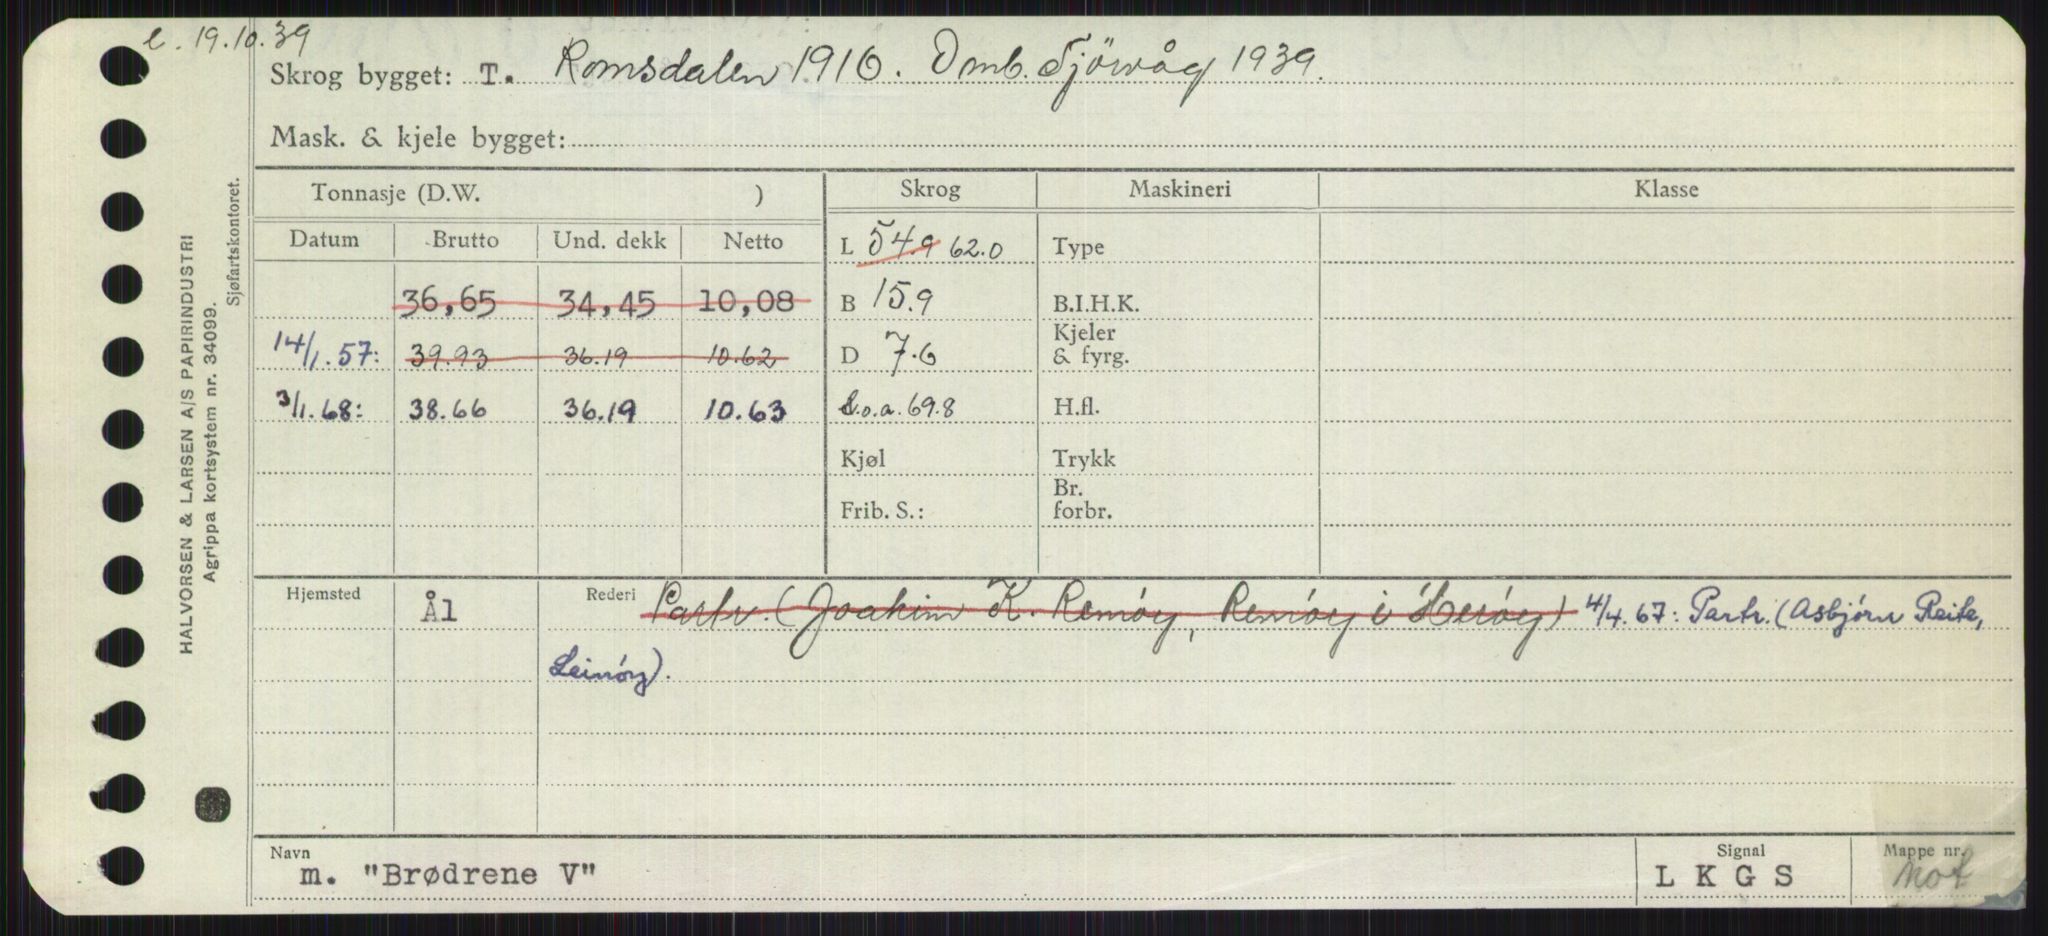 e. 19.10.39
Skrog bygget: T. Romsdalen 1916. Omb. Tjörvåg 1939.
Mask. & kjele bygget:
HALVORSEN & LARSEN A/S PAPIRINDUSTRI
Agrippa kortsystem nr. 34099.
Sjøfartskontoret.
Tonnasje (D.W. ) Skrog Maskineri Klasse
Datum Brutto Und. dekk Netto L 54.9 62.0 Type
36,65 34,45 10,08 B 15.9 B.I.H.K.
14/1.57: 39.93 36.19 10.62 D 7.6 Kjeler & fyrg.
3/1.68: 38.66 36.19 10.63 L.o.a. 69.8 H.fl.
Kjøl Trykk
Frib. S.: Br. forbr.
Hjemsted Ål Rederi Partr. (Joakim K. Remöy, Remöy i Heröy) 4/4.67: Partr. (Asbjörn Reite,
Leinöy).
Navn Signal Mappe nr.
m. "Brødrene V" L K G S Mot